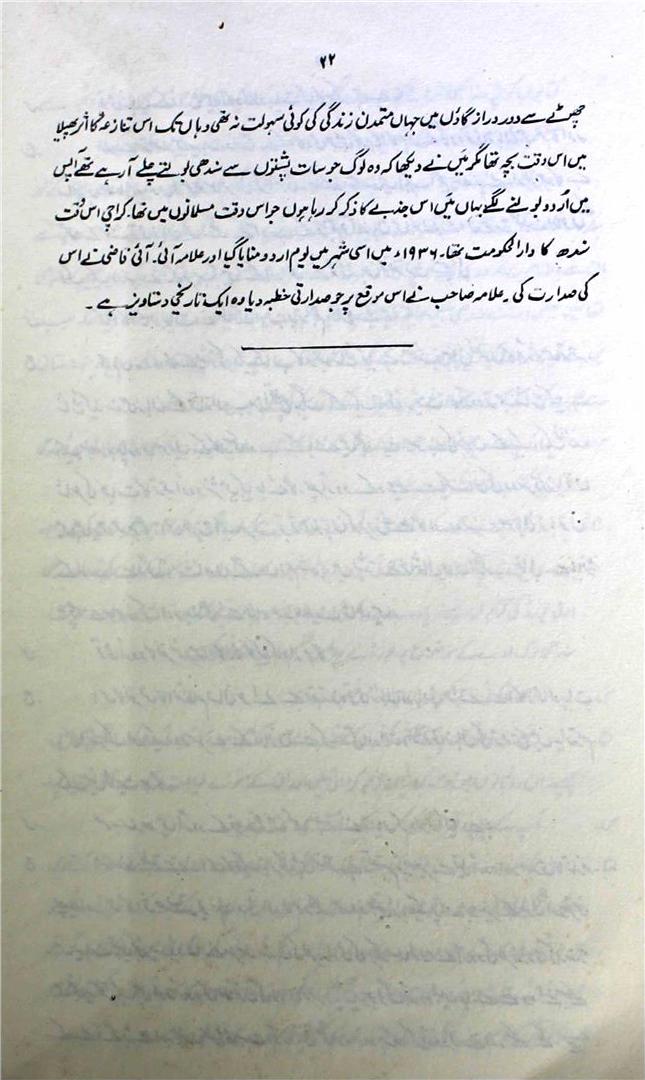 ۲۲
چھوٹے سے دور دراز گاؤں میں جہاں متمدن زندگی کی کوئی سہولت نہ تھی وہاں تک اس تنازعہ کا اثر پھیلا
میں اس وقت بچہ تھا مگر میں نے دیکھا کہ وہ لوگ جو سات پشتوں سے سندھی بولتے چلے آ رہے تھے آپس
میں اُردو بولنے لگے یہاں میں اس جذبے کا ذکر کر رہا ہوں جو اس وقت مسلمانوں میں تھا۔ کراچی اس وقت
سندھ کا دارالحکومت تھا۔ ۱۹۳۶ء میں اسی شہر میں یوم اردو منایا گیا اور علامہ آئی۔ آئی قاضی نے اس
کی صدارت کی۔ علامہ صاحب نے اس موقع پر جو صدارتی خطبہ دیا وہ ایک تاریخی دستاویز ہے۔